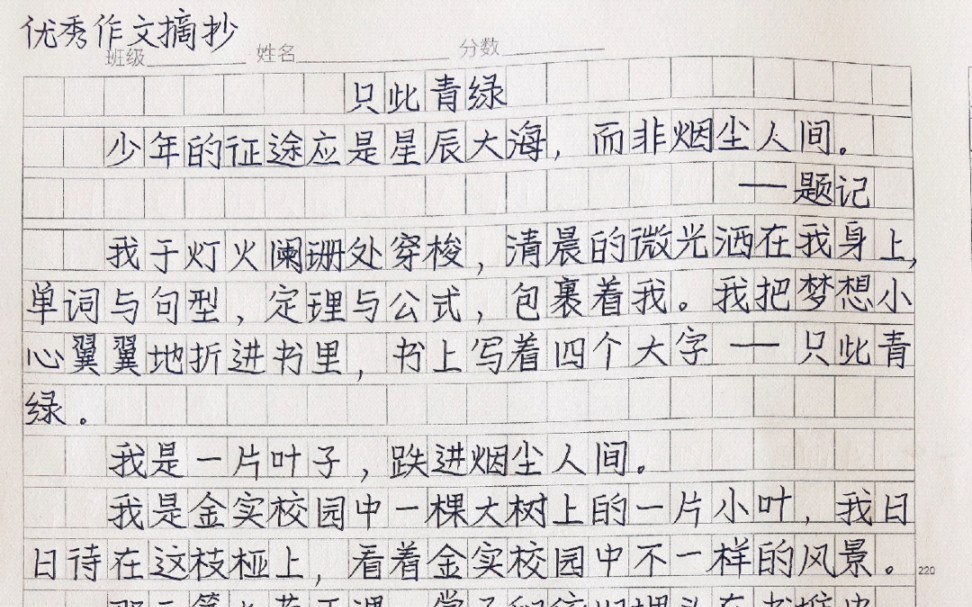 优秀作文摘抄
班级 姓名 分数
只此青绿
少年的征途应是星辰大海，而非烟尘人间。
——题记
我于灯火阑珊处穿梭，清晨的微光洒在我身上，
单词与句型，定理与公式，包裹着我。我把梦想小
心翼翼地折进书里，书上写着四个大字——只此青
绿。
我是一片叶子，跌进烟尘人间。
我是金实校园中一棵大树上的一片小叶，我日
日待在这枝桠上，看着金实校园中不一样的风景。
220